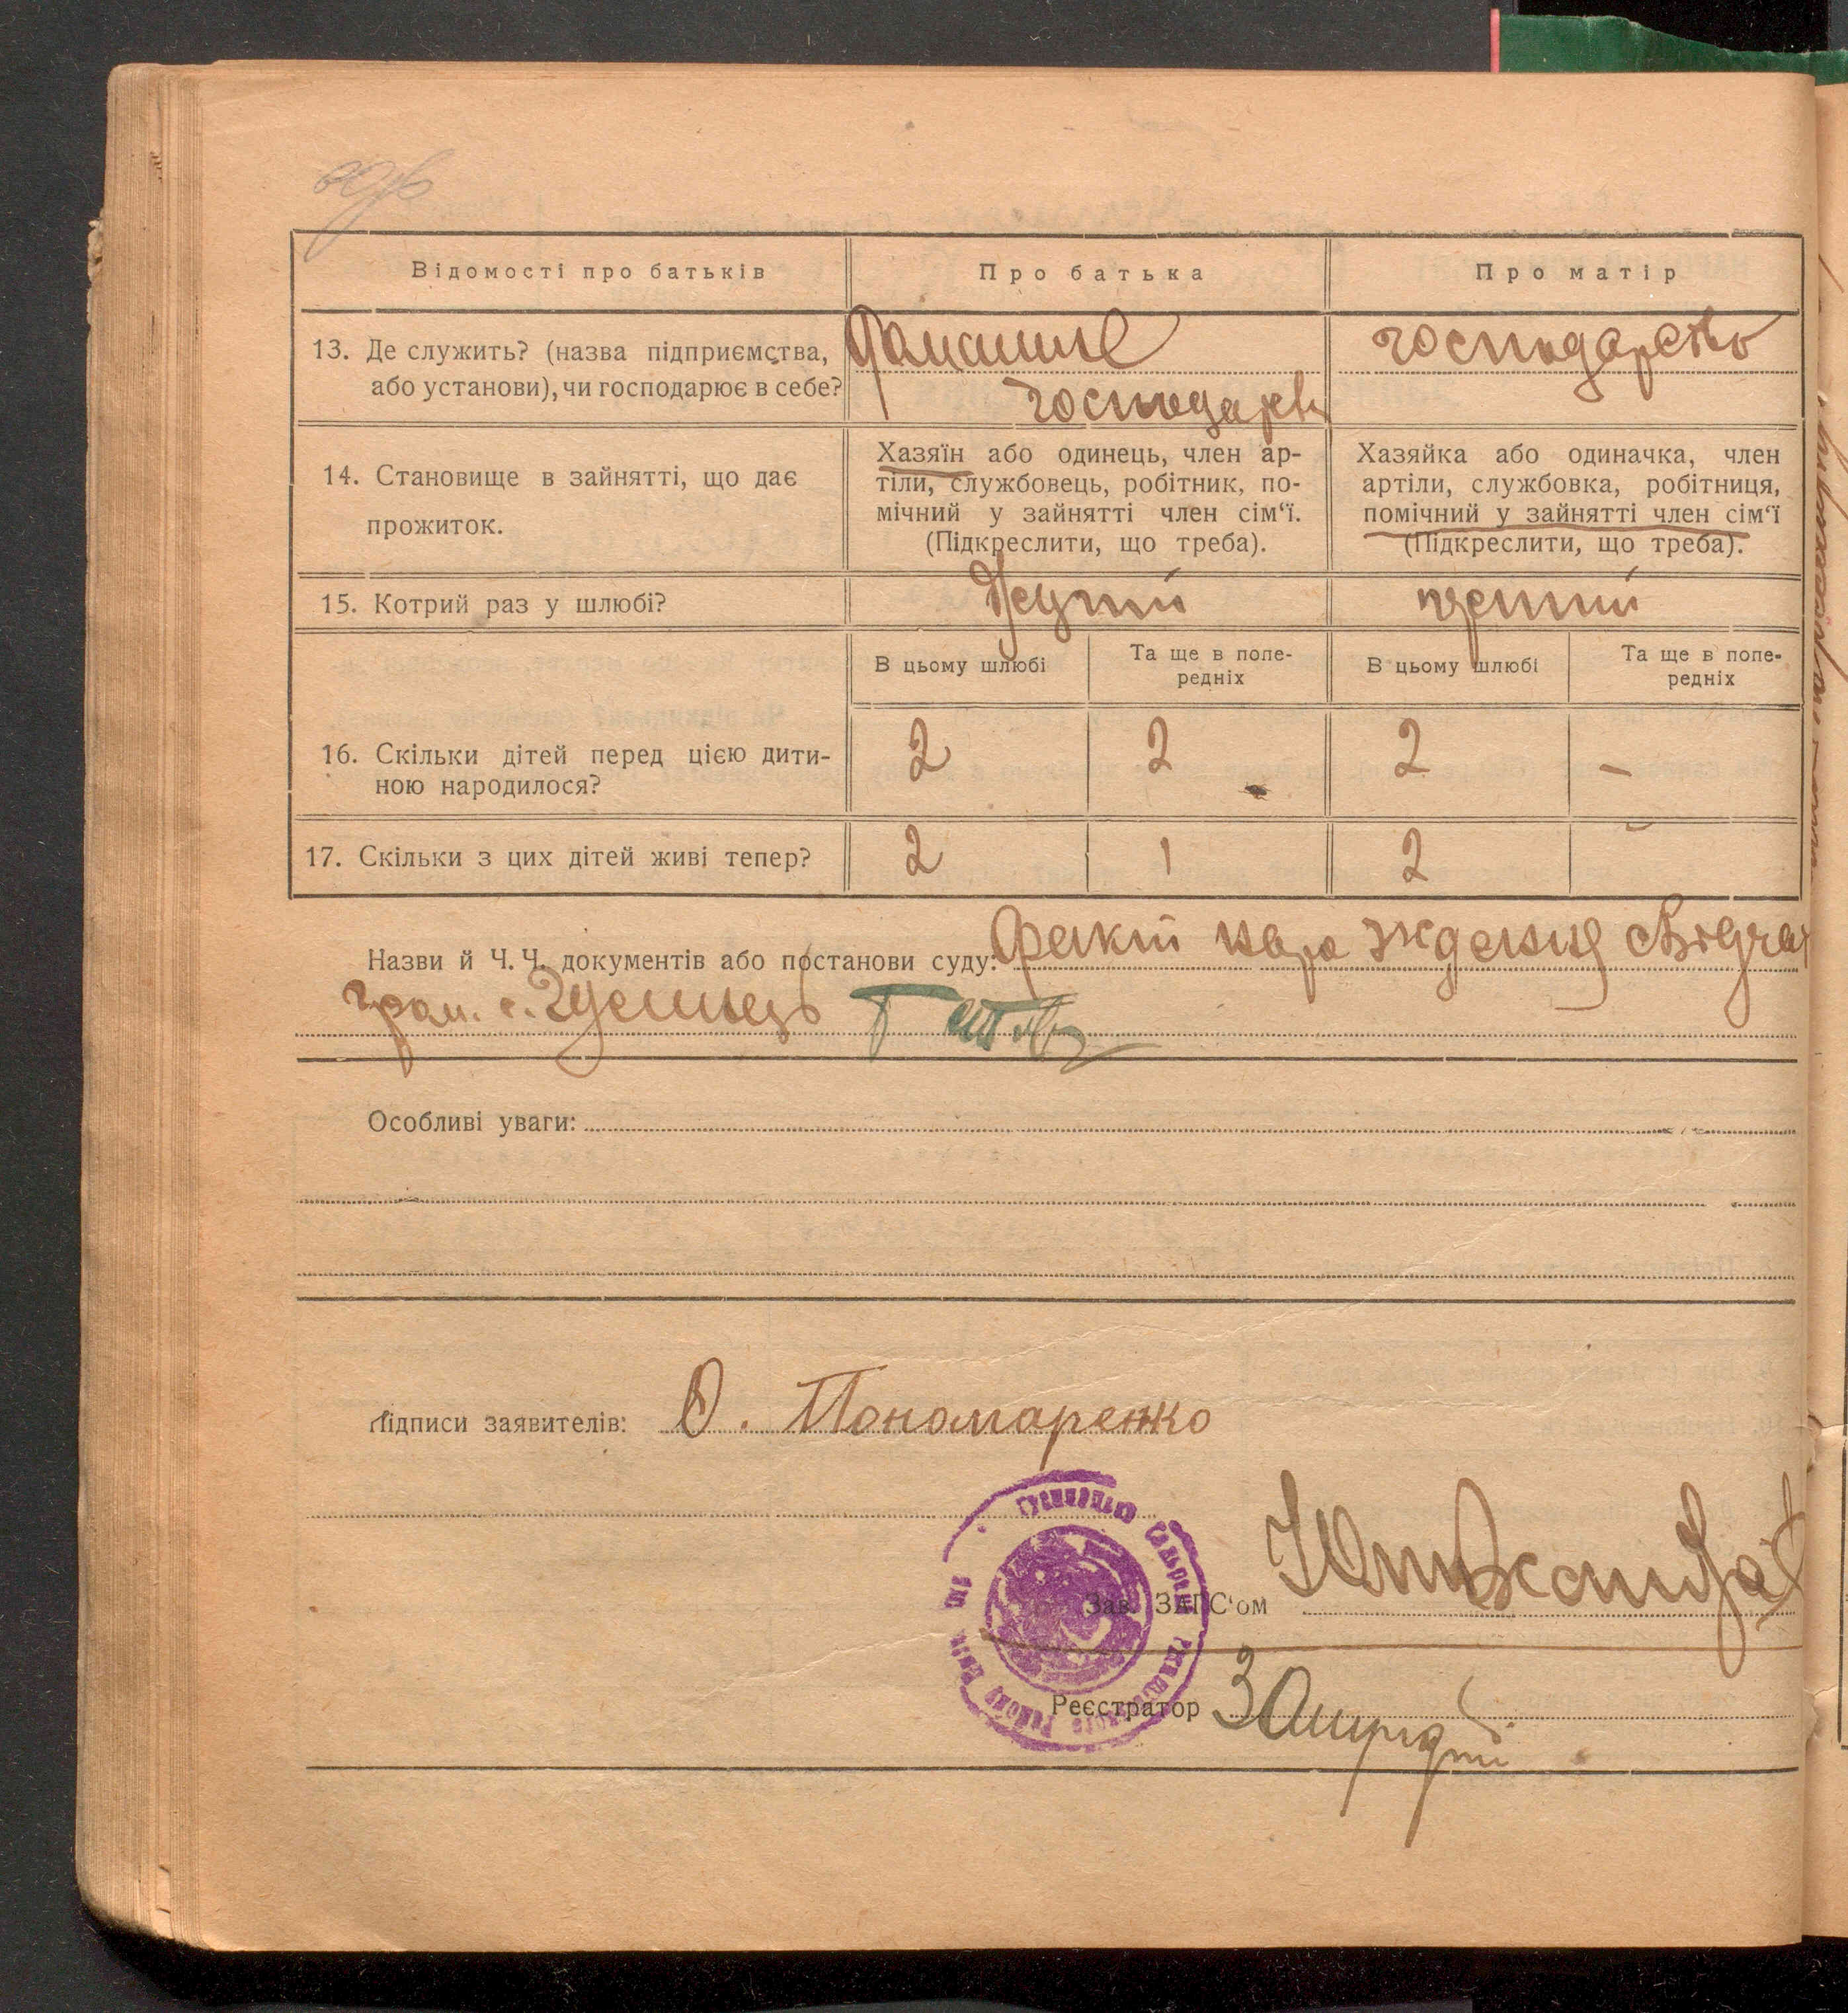 Відомості про батьків
Про батька
Про матір
13. Де служить? (назва підприємства,
або установи), чи господарює в себе?
Домашнє
господарств
господарство
14. Становище в зайнятті, що дає
прожиток.
Хазяїн або одинець, член ар-
тіли, службовець, робітник, по-
мічний у зайнятті член сім'ї.
(Підкреслити, що треба).
Хазяйка або одиначка, член
артіли, службовка, робітниця,
помічний у зайнятті член сім'ї
(Підкреслити, що треба).
15. Котрий раз у шлюбі?
Другий
перший
В цьому шлюбі
Та ще в попе-
редніх
В цьому шлюбі
Та ще в попе-
редніх
16. Скільки дітей перед цією дити-
ною народилося?
2 2 2 -
17. Скільки з цих дітей живі тепер?
2 1 2 -
Назви й Ч. Ч. документів або постанови суду: факт народження свідчат
гром. с.
Особливі уваги:
Підписи заявителів: О. Пономаренко
Зав. ЗАГС'ом
Реєстратор